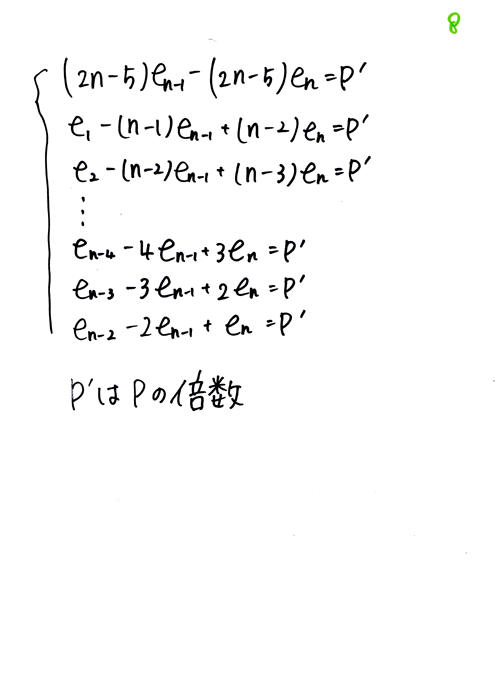 8
(2n-5)e_{n-1}-(2n-5)e_n=P'
e_1-(n-1)e_{n-1}+(n-2)e_n=P'
e_2-(n-2)e_{n-1}+(n-3)e_n=P'
⋮
e_{n-4}-4e_{n-1}+3e_n=P'
e_{n-3}-3e_{n-1}+2e_n=P'
e_{n-2}-2e_{n-1}+e_n=P'
P'はPの倍数